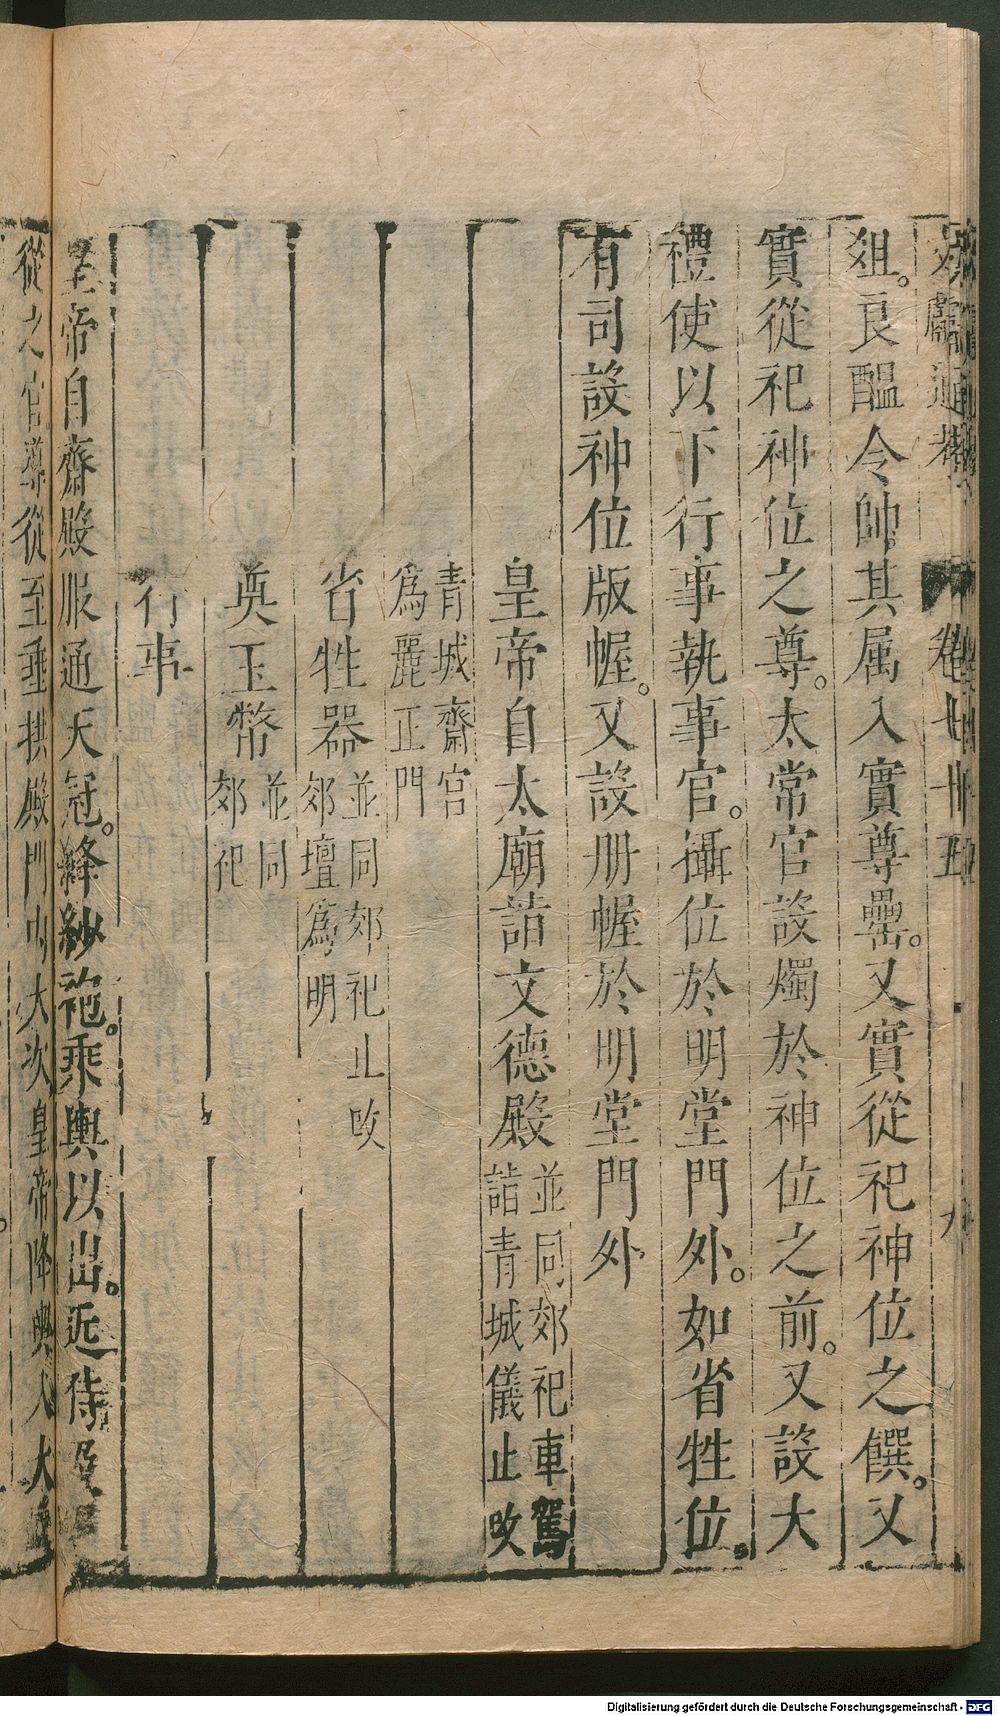 文獻通考 卷七十五 九
俎。良醞令帥其属入實尊罍。又實從祀神位之饌。又
實從祀神位之尊。太常官設燭於神位之前。又設大
禮使以下行事執事官。攝位於明堂門外。如省牲位。
有司設神位版幄。又設册幄於明堂門外
皇帝自太廟詣文德殿並同郊祀車駕
詣青城儀止改
青城齋宮
爲麗正門
省牲器並同郊祀止改
郊壇爲明
奠玉幣並同
郊祀
行事
皇帝自齋殿服通天冠。絳紗袍。乘輿以出。近侍及
從之官導從至垂拱殿門內大次皇帝降輿入大
Digitalisierung gefördert durch die Deutsche Forschungsgemeinschaft - DFG